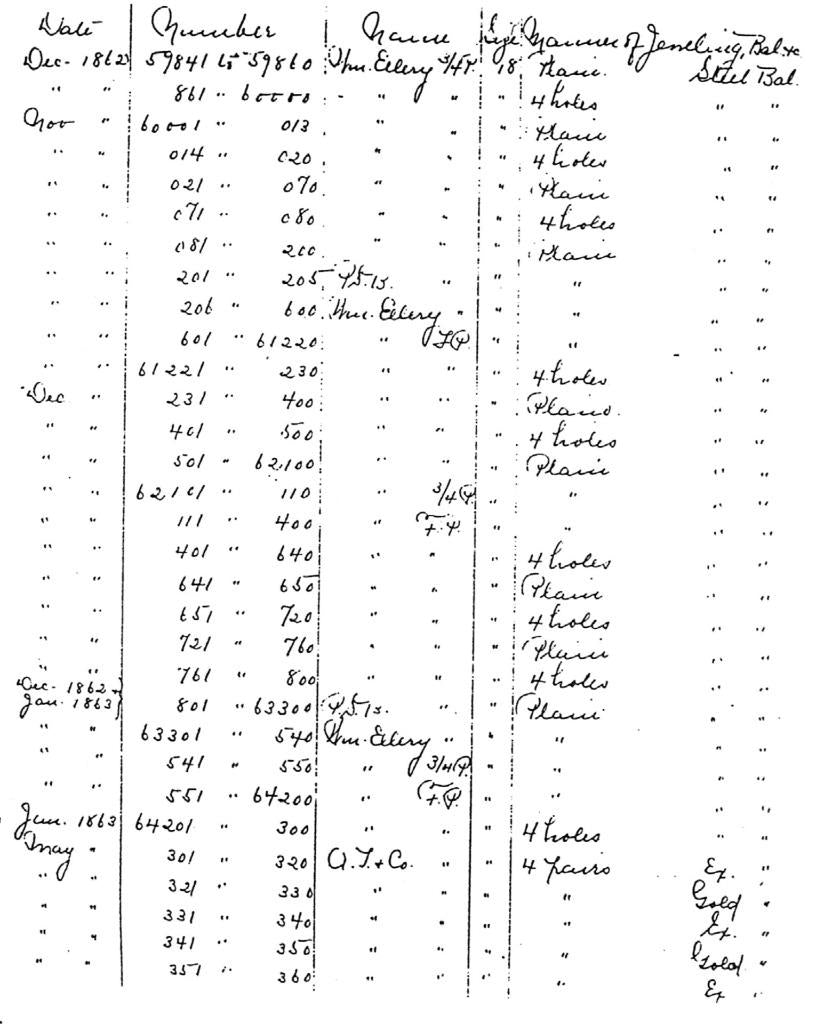 Date Number Name Size Manner of Jeweling, Bal. &c
Dec. 1862 59841 to 59860 Wm. Ellery 3/4 P. 18 Plain. Steel Bal.
" " 861 " 60000 " " " 4 holes " "
Nov " 60001 " 013 " " " Plain " "
" " 014 " 020 " " " 4 holes " "
" " 021 " 070 " " " Plain " "
" " 071 " 080 " " " 4 holes " "
" " 081 " 200 " " " Plain " "
" " 201 " 205 P.S.B. " " " " "
" " 206 " 600 Wm. Ellery " " " " "
" " 601 " 61220 " F.P. " " " "
" " 61221 " 230 " " " 4 holes " "
Dec " 231 " 400 " " " Plain. " "
" " 401 " 500 " " " 4 holes " "
" " 501 " 62100 " " " Plain " "
" " 62101 " 110 " 3/4 P. " " " "
" " 111 " 400 " F.P. " " " "
" " 401 " 640 " " " 4 holes " "
" " 641 " 650 " " " Plain " "
" " 651 " 720 " " " 4 holes " "
" " 721 " 760 " " " Plain " "
" " 761 " 800 " " " 4 holes " "
Dec. 1862 +
Jan. 1863} 801 " 63300 P.S.B. " " Plain " "
" " 63301 " 540 Wm. Ellery " " " " "
" " 541 " 550 " 3/4 P. " " " "
" " 551 " 64200 " F.P. " " " "
Jan. 1863 64201 " 300 " " " 4 holes " "
May " 301 " 320 A.T. & Co. " " 4 pairs Ex. "
" " 321 " 330 " " " " Gold "
" " 331 " 340 " " " " Ex. "
" " 341 " 350 " " " " Gold "
" " 351 " 360 " " " " Ex "